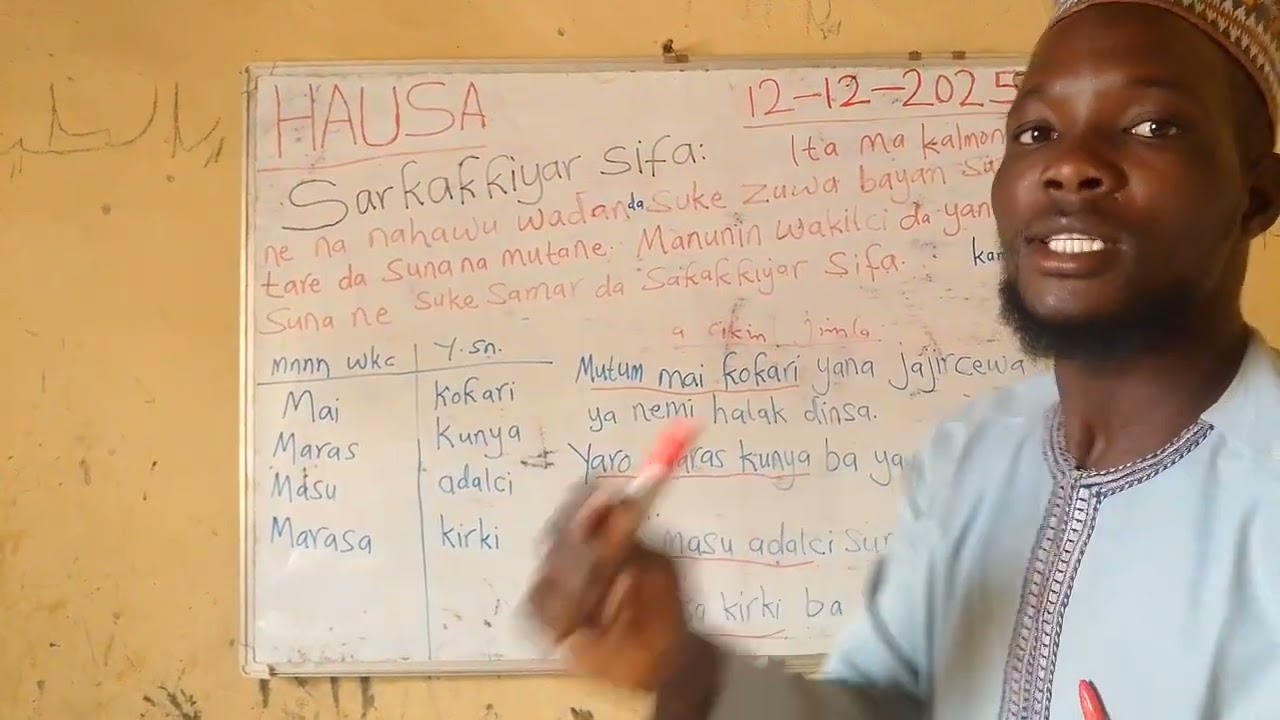 HAUSA
12-12-2025
Sarkakkiyar Sifa: Ita ma kalmon
ne na nahawu wadanda suke zuwa bayan su
tare da sunana mutane. Manunin wakilci da yan
kan
suna ne suke samar da Sakakkiyar Sifa.
a cikin jimla:
mnnn wkc Y.sn.
Mai kokari
Maras kunya
Masu adalci
Marasa kirki
Mutum mai kokari yana jajircewa
ya nemi halak dinsa.
Yaro maras kunya ba ya
masu adalci sun
kirki ba